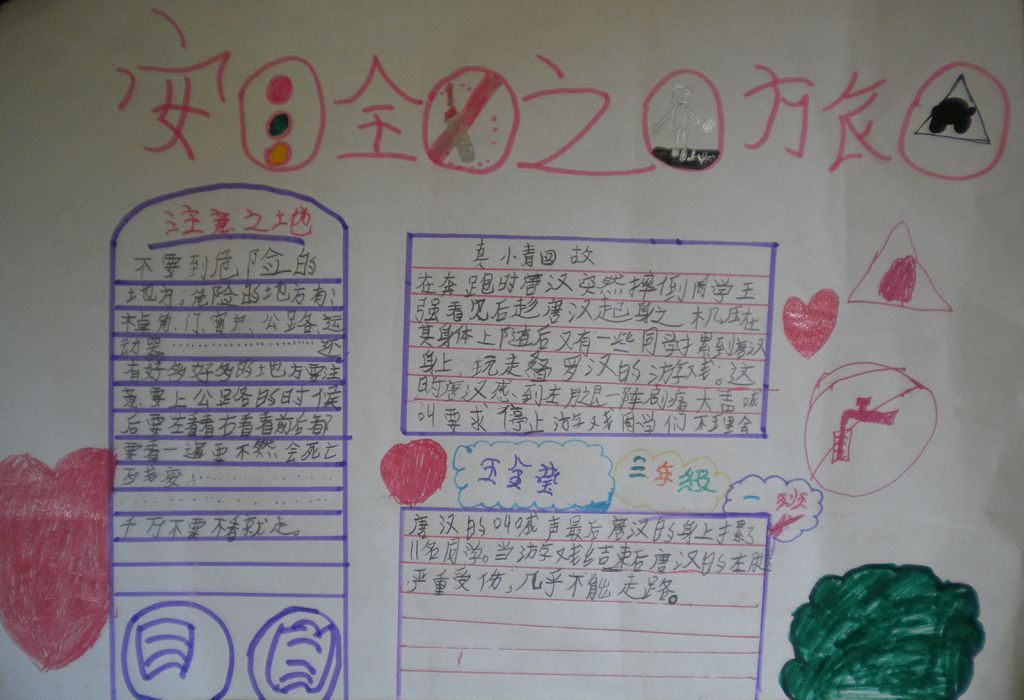 安全之旅
注意之地
不要到危险的
地方;危险的地方有:
桌角、门、窗户、公路、运
动器……………还
有好多好多的地方要注
意要上公路的时候
后要左看看右看看前后都
要看一遍要不然会死亡
千万不要不看就走。
真小青回故
在奔跑时唐汉突然摔倒同学王
强看见后趁唐汉起身之机压在
其身体上随后又有一些同学扌累到唐汉
身上;玩走叠罗汉的游戏。这
时唐汉感到左腿一阵剧痛大声喊
叫要求停止游戏同学们不理会
王全莹
三年级
一班
唐汉的叫喊声最后唐汉的身上扌累了
11名同学。当游戏结束后唐汉的左腿
严重受伤;几乎不能走路。